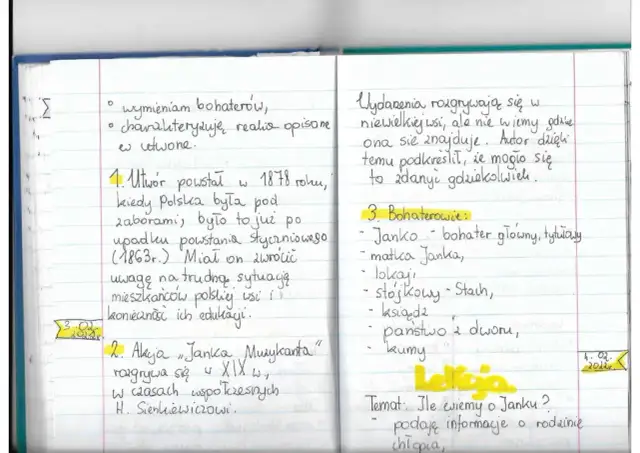 ° wymieniam bohaterów,
° charakteryzuję realia opisane
w utworze.
1. Utwór powstał w 1878 roku,
kiedy Polska była pod
zaborami, było to już po
upadku powstania styczniowego
(1863r.) Miał on zwrócić
uwagę na trudną sytuację
mieszkańców polskiej wsi i
konieczność ich edukacji.
3. 02.
2022r.
2. Akcja „Janka Muzykanta"
rozgrywa się w XIX w,
w czasach współczesnych
H. Sienkiewiczowi.
Wydarzenia rozgrywają się w
niewielkiej wsi, ale nie wiemy gdzie
ona się znajduje. Autor dzięki
temu podkreślił, że mogło się
to zdarzyć gdziekolwiek.
3. Bohaterowie:
- Janko - bohater główny, tytułowy
- matka Janka,
- lokaj,
- stójkowy - Stach,
- ksiądz
- państwo z dworu,
- kumy
4. 02.
2022r.
Lekcja
Temat: Ile wiemy o Janku?
- podaję informacje o rodzinie
chłopca,